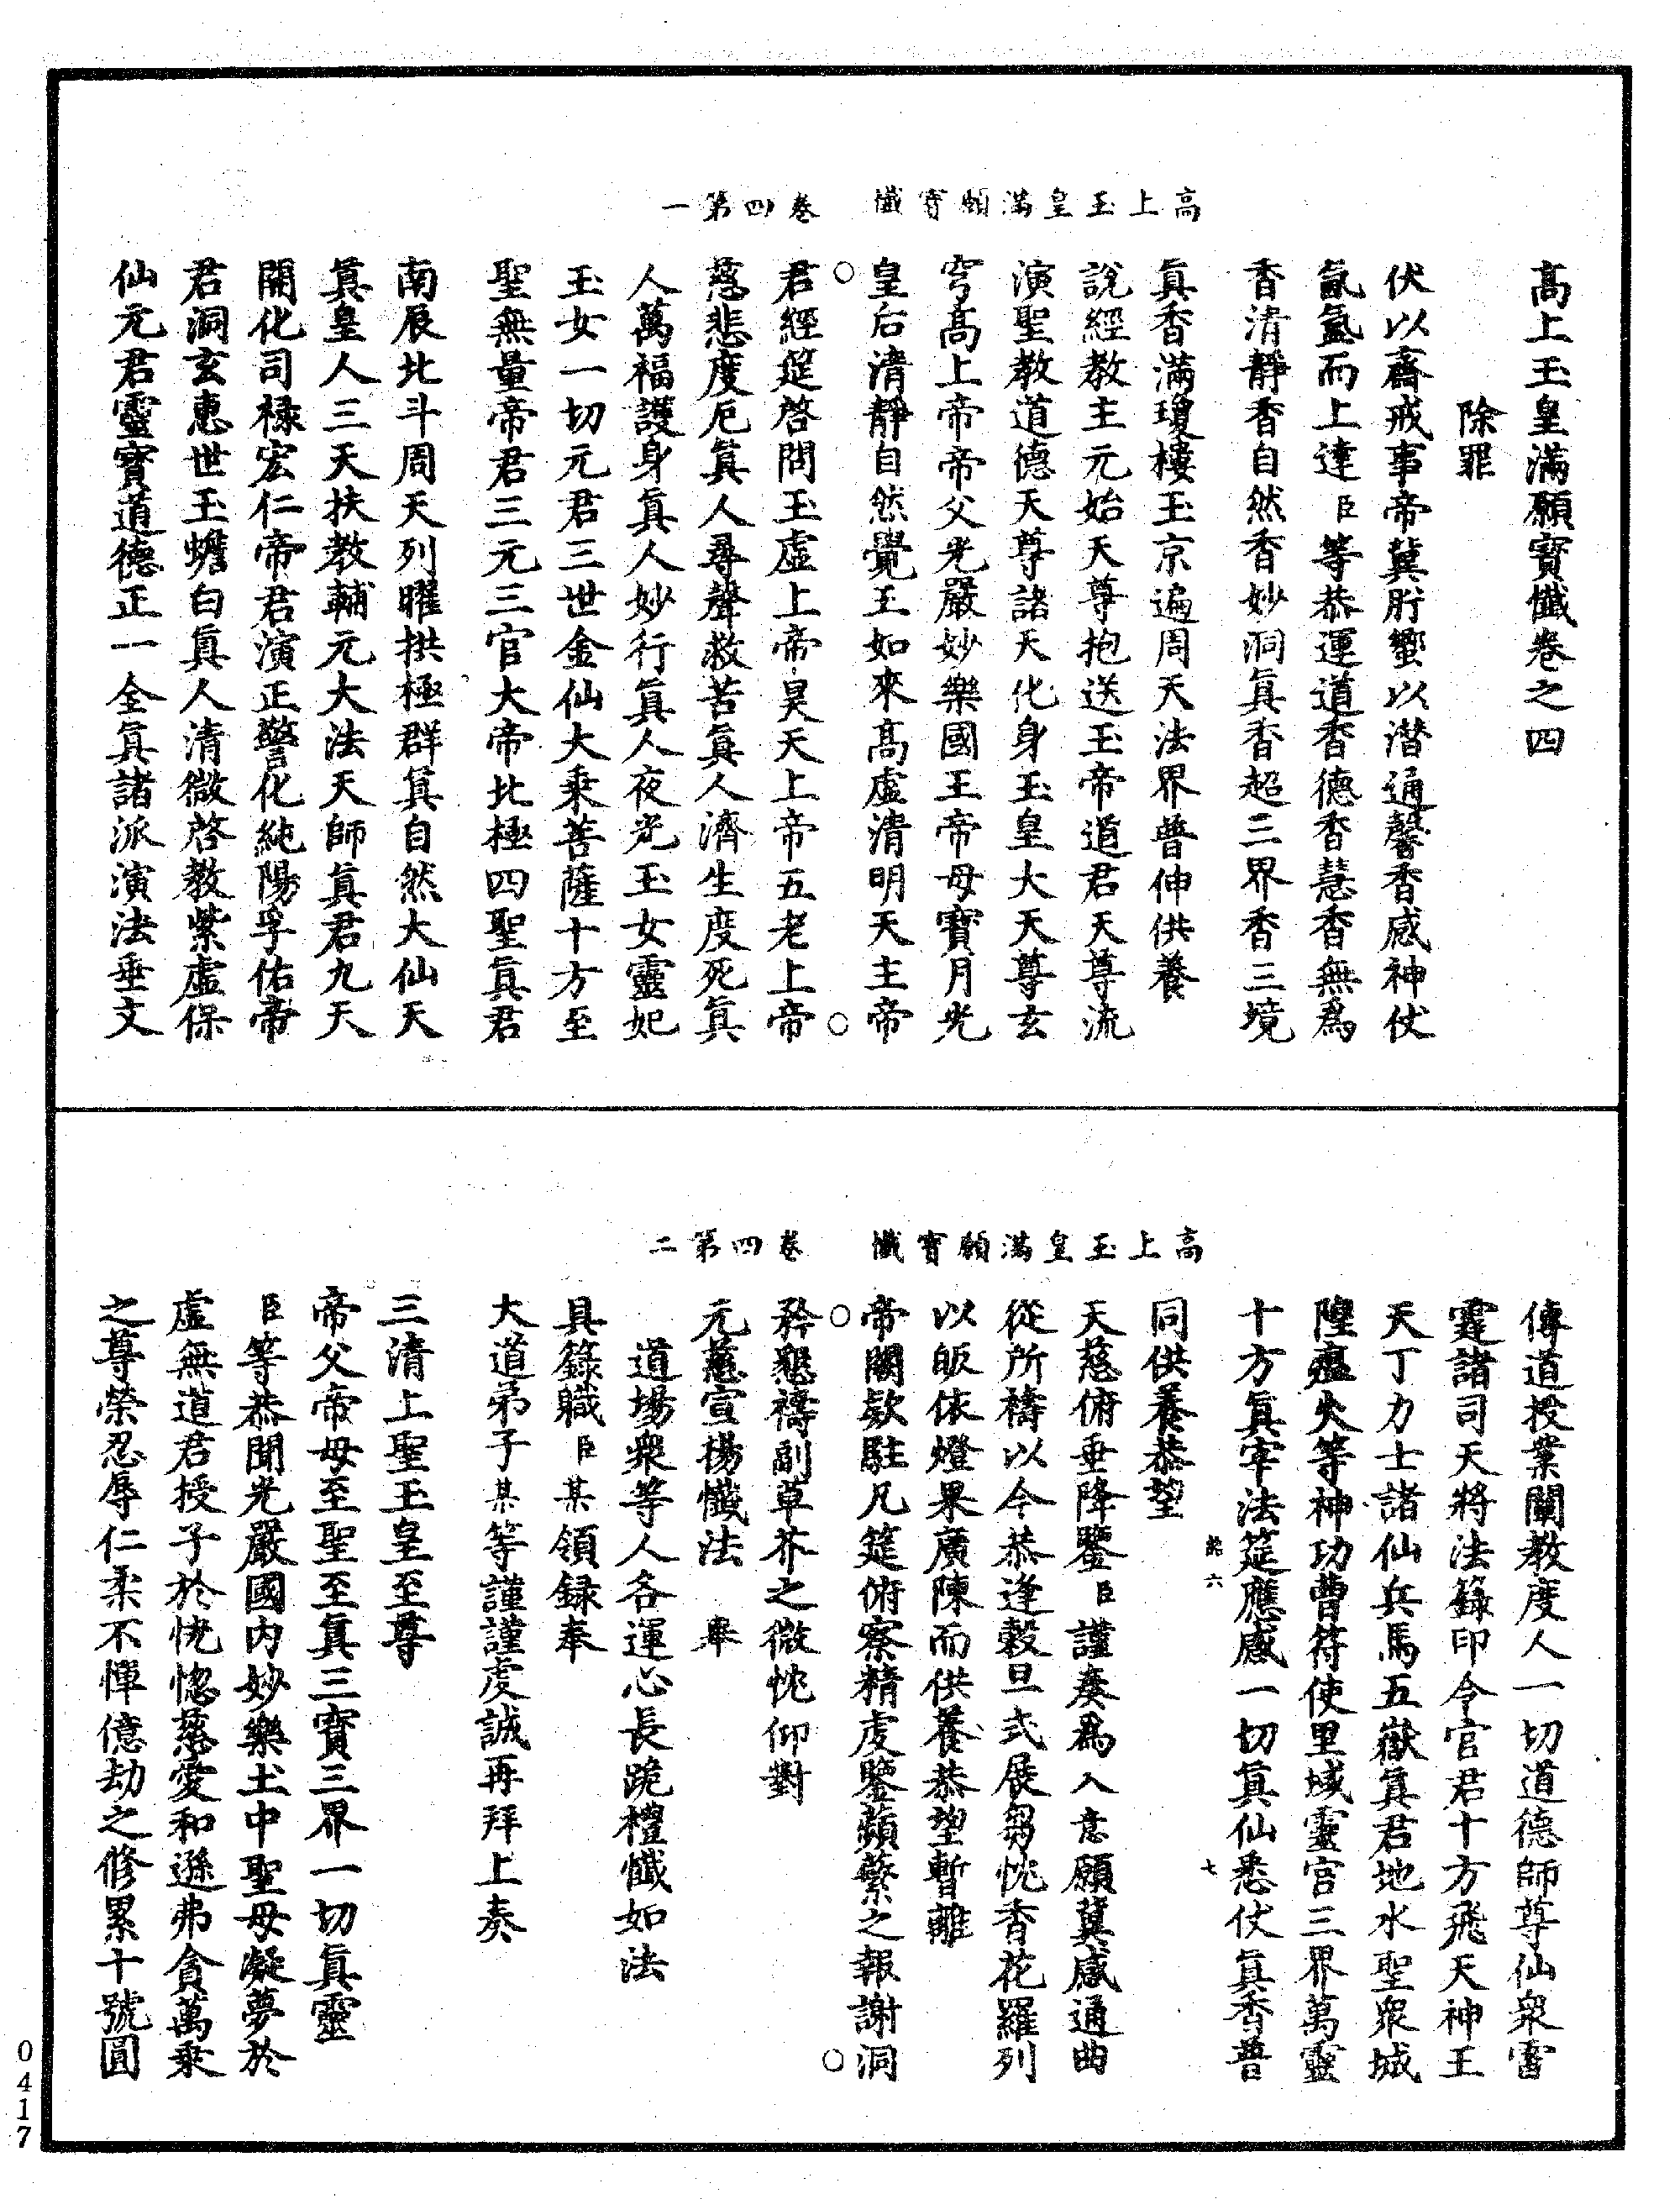 高上玉皇滿願寶懺　卷四第一
高上玉皇滿願寶懺卷之四
除罪
伏以齋戒事帝冀肹蠁以潛通馨香感神仗
氤氳而上達臣等恭運道香德香慧香無為
香清靜香自然香妙洞真香超三界香三境
真香滿瓊樓玉京遍周天法界普伸供養
說經教主元始天尊抱送玉帝道君天尊流
演聖教道德天尊諸天化身玉皇大天尊玄
穹高上帝帝父光嚴妙樂國王帝母寶月光
皇后清靜自然覺王如來高虛清明天主帝
君經筵啓問玉虛上帝昊天上帝五老上帝
慈悲度厄真人尋聲救苦真人濟生度死真
人萬福護身真人妙行真人夜光玉女靈妃
玉女一切元君三世金仙大乘菩薩十方至
聖無量帝君三元三官大帝北極四聖真君
南辰北斗周天列曜拱極群真自然大仙天
真皇人三天扶教輔元大法天師真君九天
開化司祿宏仁帝君演正警化純陽孚佑帝
君洞玄惠世玉蟾白真人清微啓教紫虛保
仙元君靈寶道德正一全真諸派演法垂文
高上玉皇滿願寶懺　卷四第二
傳道授業闡教度人一切道德師尊仙眾雷
霆諸司天將法籙印令官君十方飛天神王
天丁力士諸仙兵馬五嶽真君地水聖眾城
隍瘟火等神功曹符使里域靈官三界萬靈
十方真宰法筵應感一切真仙悉仗真香普
同供養恭望
天慈俯垂降鑒臣謹奏為入意願冀感通曲
從所禱以今恭逢穀旦式展芻忱香花羅列
以皈依燈果廣陳而供養恭望暫離
帝闕欵駐凡筵俯察精虔鑒蘋蘩之報謝洞
矜懇禱副草芥之微忱仰對
元慈宣揚懺法　舉
道場眾等人各運心長跪禮懺如法
具籙職臣某領録奉
大道弟子某等謹謹虔誠再拜上奏
三清上聖玉皇至尊
帝父帝母至聖至真三寶三界一切真靈
臣等恭聞光嚴國内妙樂土中聖母凝夢於
虛無道君授子於恍惚慈愛和遜弗貪萬乘
之尊榮忍辱仁柔不憚億劫之修累十號圓
六
七
0417